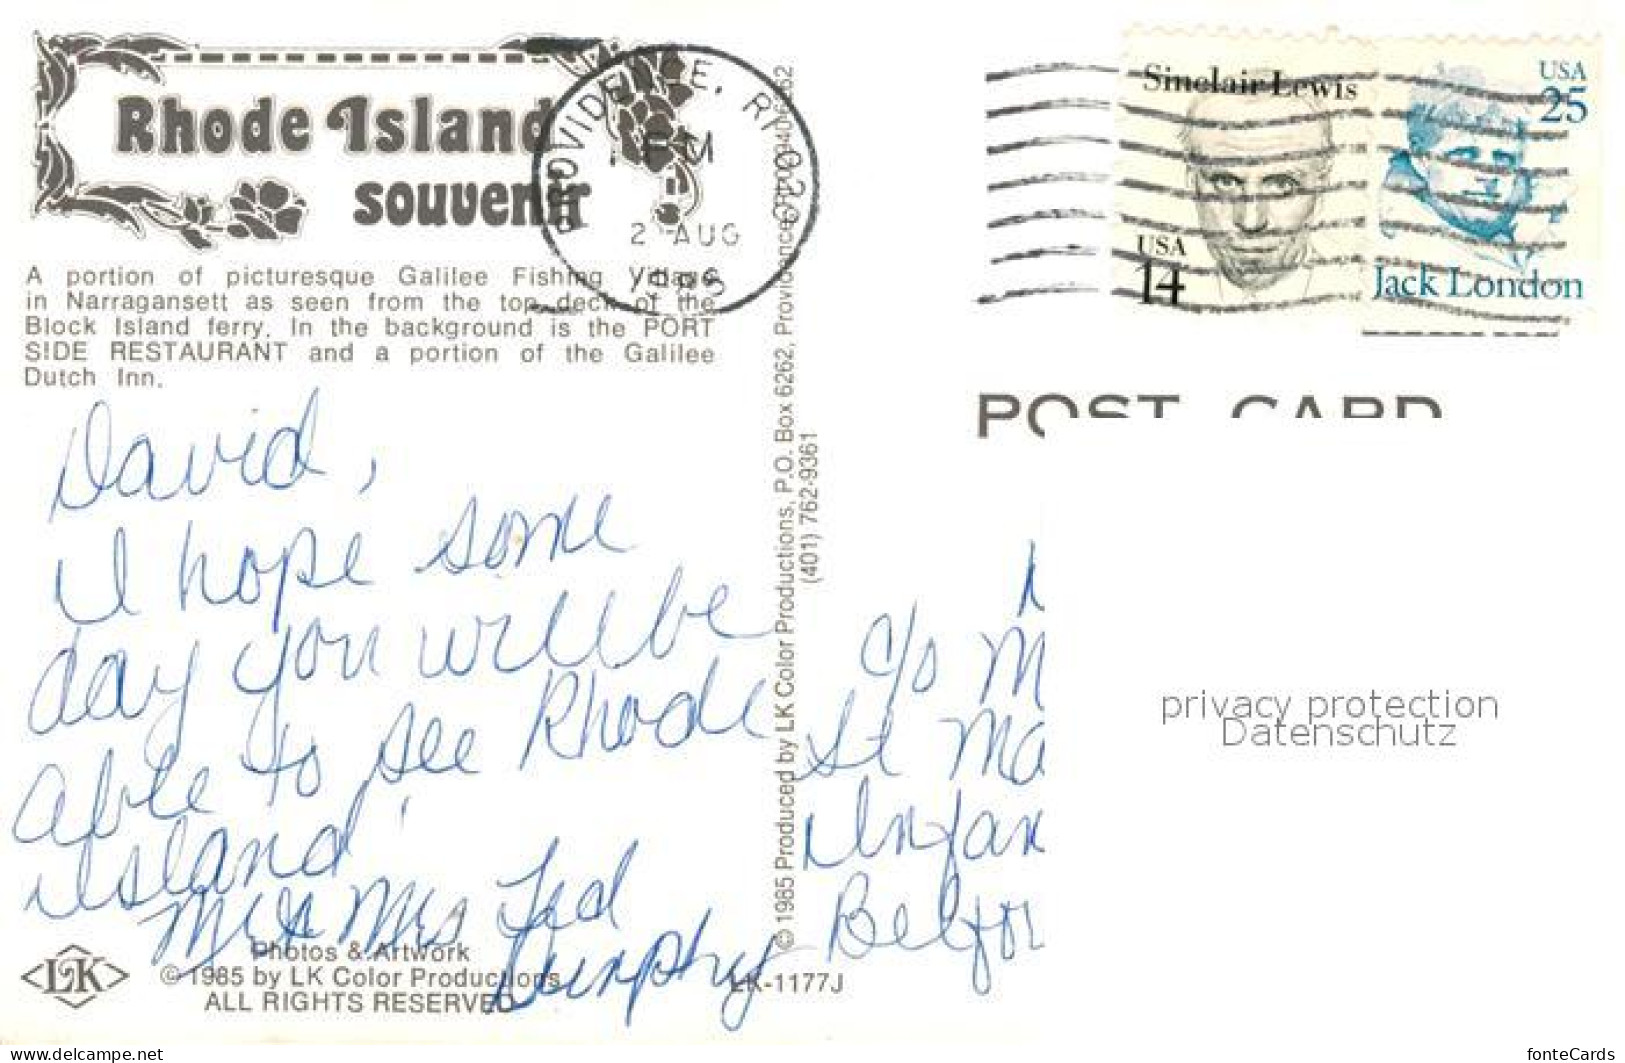 Rhode Island
souvenir
A portion of picturesque Galilee Fishing Village
in Narragansett as seen from the top deck of the
Block Island ferry. In the background is the PORT
SIDE RESTAURANT and a portion of the Galilee
Dutch Inn.
David,
I hope some
day you will be
able to see Rhode
Island!
Mr & Mrs Ted
Dunphy
Photos & Artwork
© 1985 by LK Color Productions
ALL RIGHTS RESERVED
LK
LK-1177J
© 1985 Produced by LK Color Productions, P.O. Box 6262, Providence
(401) 762-9361
PROVIDENCE, RI
PM
2 AUG
Sinclair Lewis
USA
14
USA
25
Jack London
POST CARD
c/o M
St Ma
Infan
Belfor
privacy protection
Datenschutz
www.delcampe.net
fonteCards